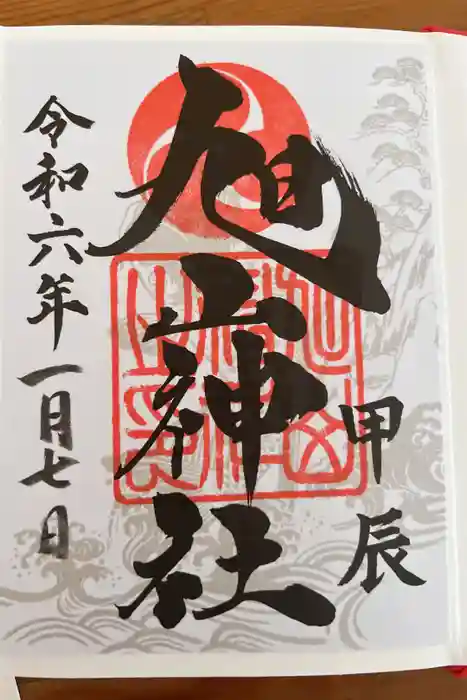 甲辰
旭山神社
令和六年一月七日